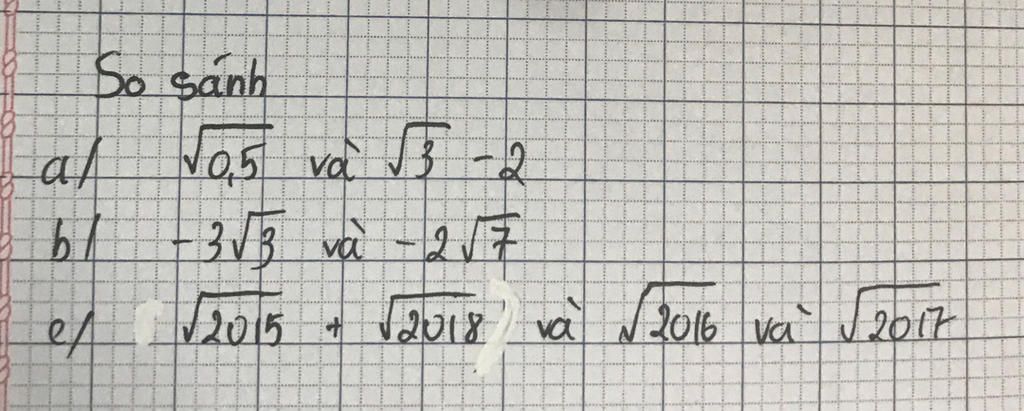 So sánh
a/ √0,5 và √3 - 2
b/ -3√3 và -2√7
e/ √2015 + √2018 và √2016 và √2017